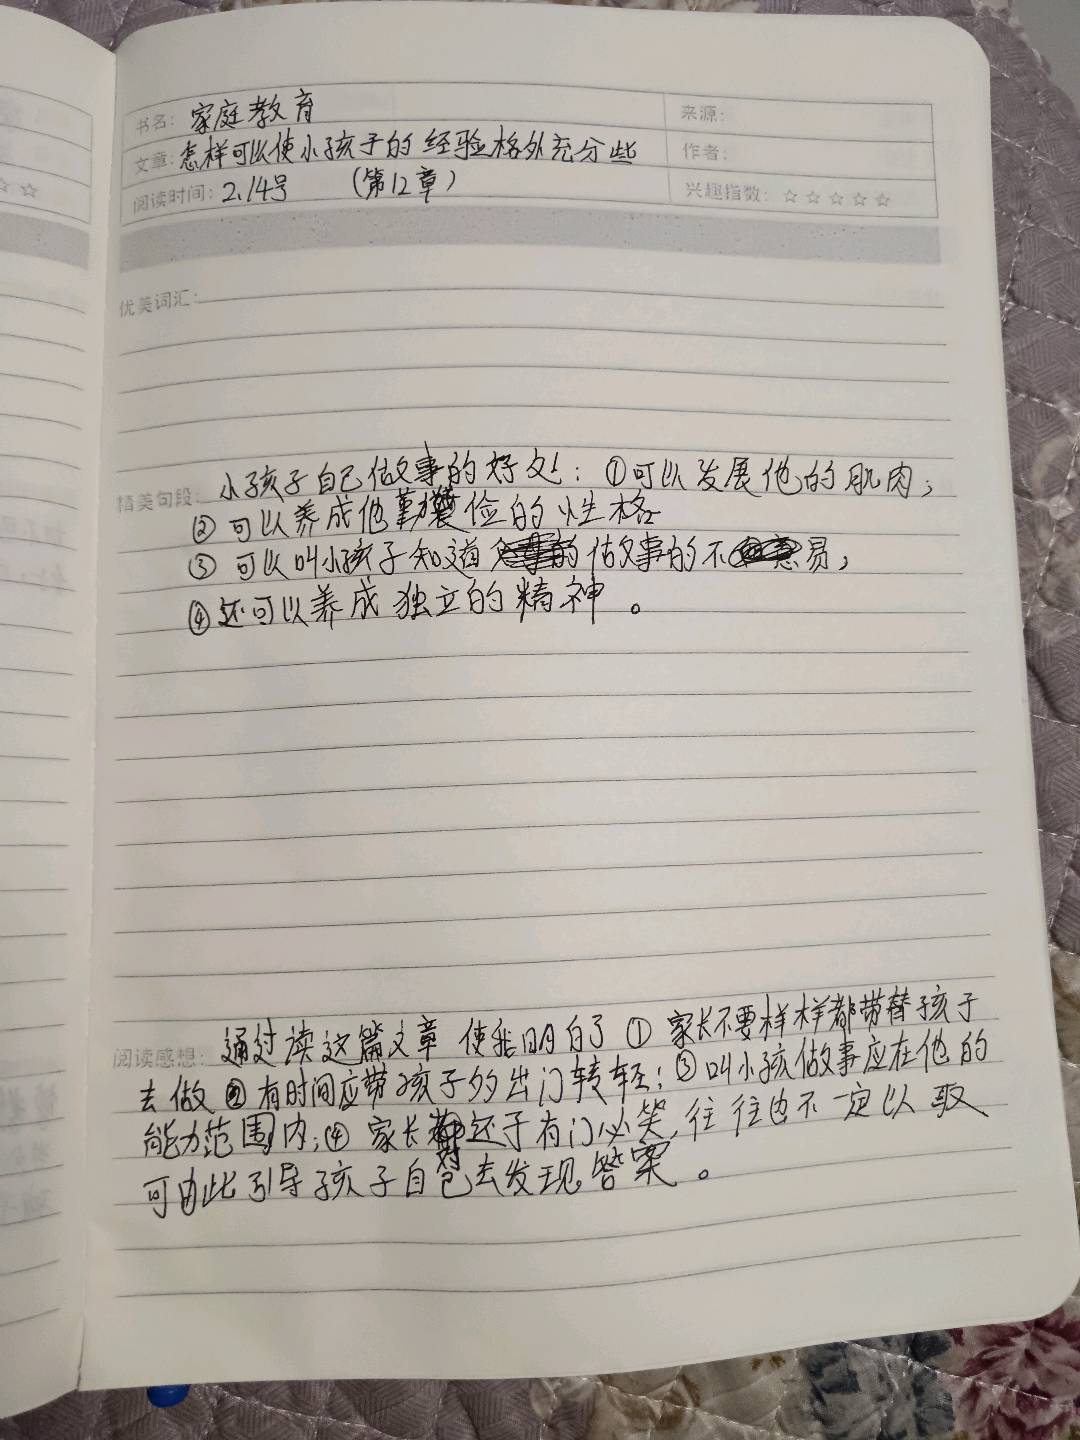 书名：家庭教育 来源：
文章：怎样可以使小孩子的经验格外充分些 作者：
阅读时间：2.14号 （第12章） 兴趣指数：☆☆☆☆☆
优美词汇：
精美句段：小孩子自己做事的好处：①可以发展他的肌肉；
②可以养成他勤俭的性格
③可以叫小孩子知道做事的不易，
④还可以养成独立的精神。
阅读感想：通过读这篇文章 使我明白了 ①家长不要样样都带替孩子
去做 ②有时间应带孩子多出门转转；③叫小孩做事应在他的
能力范围内；④家长对还子有门必笑，往往也不一定以取
可由此引导孩子自己去发现答案。